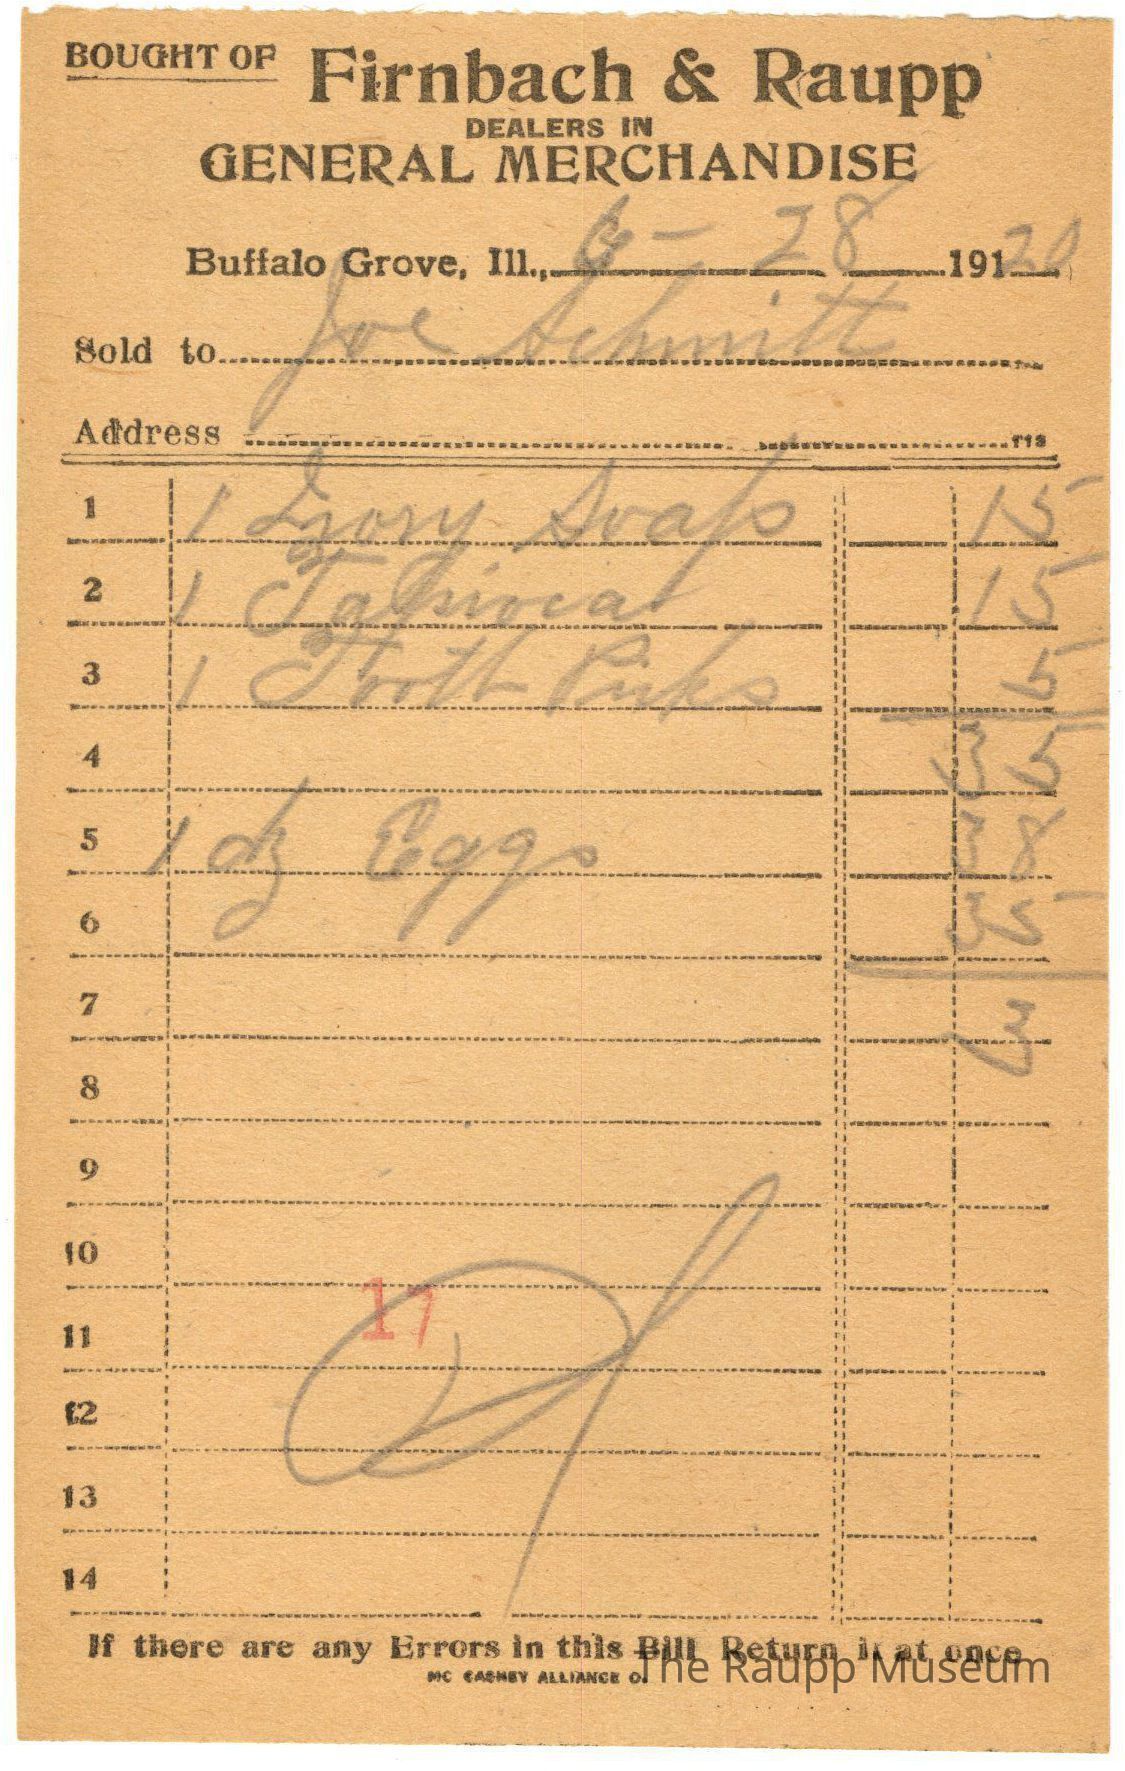 BOUGHT OF Firnbach & Raupp
DEALERS IN
GENERAL MERCHANDISE
Buffalo Grove, Ill., 6 - 28 191 20
Sold to Joe Schmitt
Address
1 1 Ivory Soap 15
2 1 Tapioca 15
3 1 Tooth Picks 5
4 35
5 1 dz Eggs 38
6 35
7 3
8
9
10
17
11
12
13
14
If there are any Errors in this Bill Return it at once
MC CASKEY ALLIANCE O.
The Raupp Museum